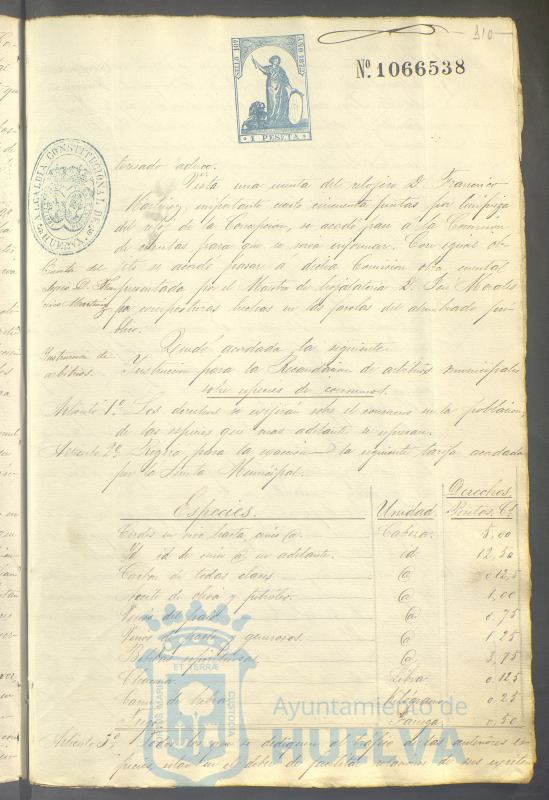 310
SELLO 10º AÑO 1872
1 PESETA
Nº 1066538
ALCALDIA CONSTITUCIONAL DE HUELVA
tresado aduce.
Vista una cuenta del relojero D. Francisco
Martinez, importante ciento cincuenta puntas por limpieza
del reloj de la Concepcion, se acordó pase á la Comision
de cuentas para que se sirva informar. Con igual ob-
Cuenta del
jeto se acordó pasar á dicha Comision otra cuenta
presentada por el Maestro de hojalateria D. José Morales
por composturas hechas en las farolas del alumbrado pú-
blico.
Quedó acordada la siguiente
Instruccion de
arbitrios.
Instruccion para la Recaudacion de arbitrios municipales
sobre especies de consumos.
Articulo 1º Los derechos se exijiran sobre el consumo en la poblacion,
de las especies que mas adelante se espresan.
Articulo 2º Regirá para la exaccion la siguiente tarifa acordada
por la Junta Municipal.
Derechos.
Especies. Unidad. Ptas. Ct.
Cerdos en vivo hasta cinco @. Cabeza. 5,00
Id. id. de cinco @ en adelante. id. 12,50
Carbon de todas clases @ 0,12,5
Aceite de oliva y petróleo. @ 1,00
Vinos del pais @ 0,75
Vinos de pasto y generosos @ 1,25
Bebidas espirituosas @ 3,75
Libra. 0,125
Carne de hebra Kilógramo 0,25
Fanega. 0,50
Articulo 3º Todos los que se dediquen al tráfico de las anteriores es-
pecies, estan en el deber de facilitar relaciones de sus
ET TERRA
PORTUS MARIS
CUSTODIA
Ayuntamiento de
HUELVA